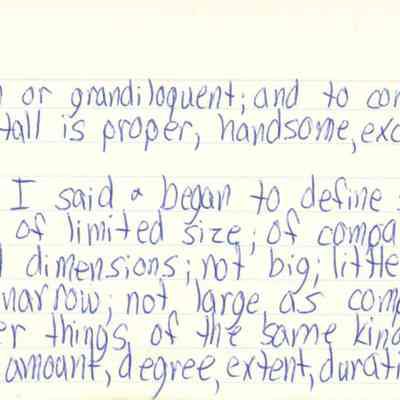 or grandiloquent; and to con
tall is proper, handsome, exc
I said a began to define
of limited size; of compa
dimensions; not big; little
narrow; not large as comp
er things of the same kind
amount, degree, extent, durati